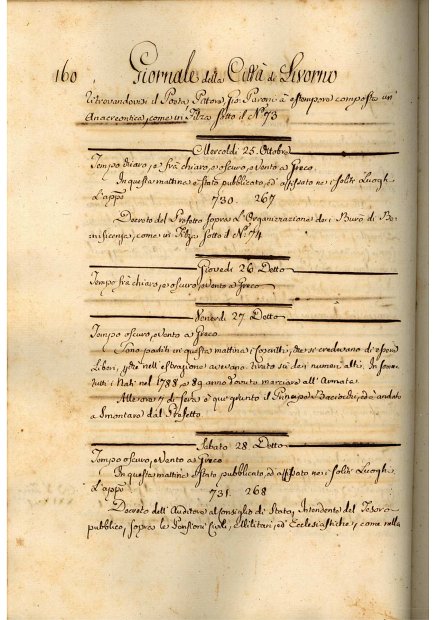 160 Giornale della Città di Livorno
Ritrovandovisi il Poeta Pittore Gio: Paroni à estempore composta un'
Anacreontica, come in Filza sotto il N.º 73
Mercoldi 25. Ottobre
Tempo chiaro, e frà chiaro, e oscuro, e Vento a Greco
In questa mattina è stato pubblicato, ed affissato nei soliti Luoghi
L'appo
730. 267
Decreto del Prefetto sopra L'Organizazione dei Burò di Be-
nificenza, come in Filza sotto il N.º 74
Giovedi 26. Detto
Tempo frà chiaro, e oscuro, e Vento a Greco
Venerdi 27. Detto
Tempo oscuro, e Vento a Greco
Sono partiti in questa mattina i Coscritti, che si credevano di essere
Liberi, che nell'estrazione avevano tirato su dei numeri alti. In somma
tutti i Nati nel 1788, e 89 anno dovuto marciare all'Armata.
Alle ore 7 di sera è quì giunto il Principe Baciochi, ed è andato
a Smontare dal Prefetto.
Sabato 28. Detto
Tempo oscuro, e Vento a Greco
In questa mattina è stato pubblicato, ed affissato nei soliti Luoghi
L'appo
731. 268
Decreto dell'Auditore al Consiglio di Stato, Intendente del Tesoro
pubblico, sopra le Pensioni Civili, Militari, ed Ecclesiastiche, come nella